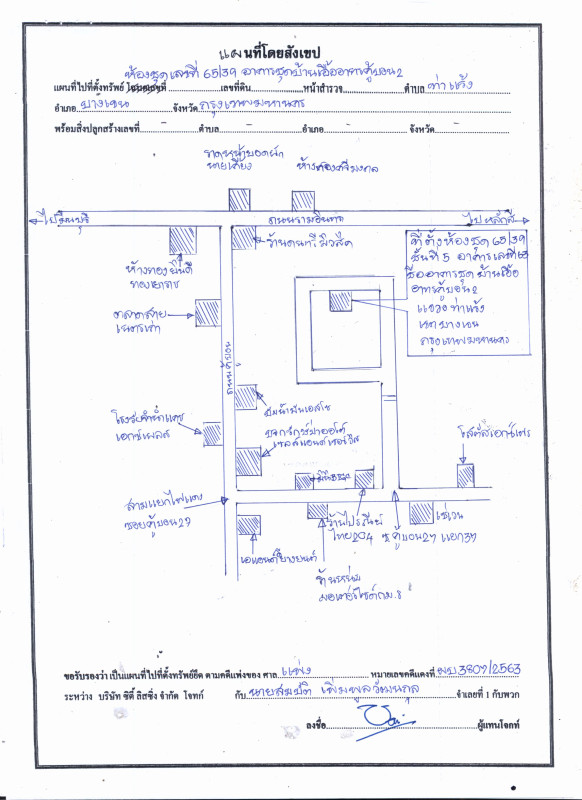 แผนที่โดยสังเขป
ห้องชุดเลขที่ 65/39 อาคารชุดบ้านเอื้ออาทรคู้บอน 2
แผนที่ไปที่ตั้งทรัพย์ เลขที่ดิน หน้าสำรวจ ตำบล ท่าแร้ง
อำเภอ บางเขน จังหวัด กรุงเทพมหานคร
พร้อมสิ่งปลูกสร้างเลขที่ - ตำบล - อำเภอ - จังหวัด -
นายเฮียง
ห้างทองศรีมงคล
ไปมีนบุรี
ถนนรามอินทรา
ไปหลักสี่
ร้านดนตรีมิวสิค
ห้างทองยินดี
เยาวราช
ที่ตั้งห้องชุด 65/39
ชั้นที่ 5 อาคารเลขที่ 65
ชื่ออาคารชุด บ้านเอื้อ
อาทรคู้บอน 2
แขวงท่าแร้ง
เขตบางเขน
กรุงเทพมหานคร
ตลาดสาย
เนตรเก่า
ถนนคู้บอน
ปั๊มน้ำมันเอสโซ่
เซลล์แอนด์เซอร์วิส
เอกซ์เพลส
โลตัสเอ็กซ์เพรส
สามแยกไฟแดง
ซอยคู้บอน 27
ร้านไปรษณีย์
ไทย 204
ซ.คู้บอน 27 แยก 37
เซเว่น
เอแอนด์บียางยนต์
ร้านหนุ่ม
มอเตอร์ไซด์ กม.8
ขอรับรองว่า เป็นแผนที่ไปที่ตั้งทรัพย์ยึด ตามคดีแพ่งของ ศาล แพ่ง หมายเลขคดีแดงที่ ผบ.3807/2563
ระหว่าง บริษัท ซิตี้ ลิสซิ่ง จำกัด โจทก์ กับ นายสมบัติ เพิ่มพูลวัฒนกุล จำเลยที่ 1 กับพวก
ลงชื่อ ผู้แทนโจทก์